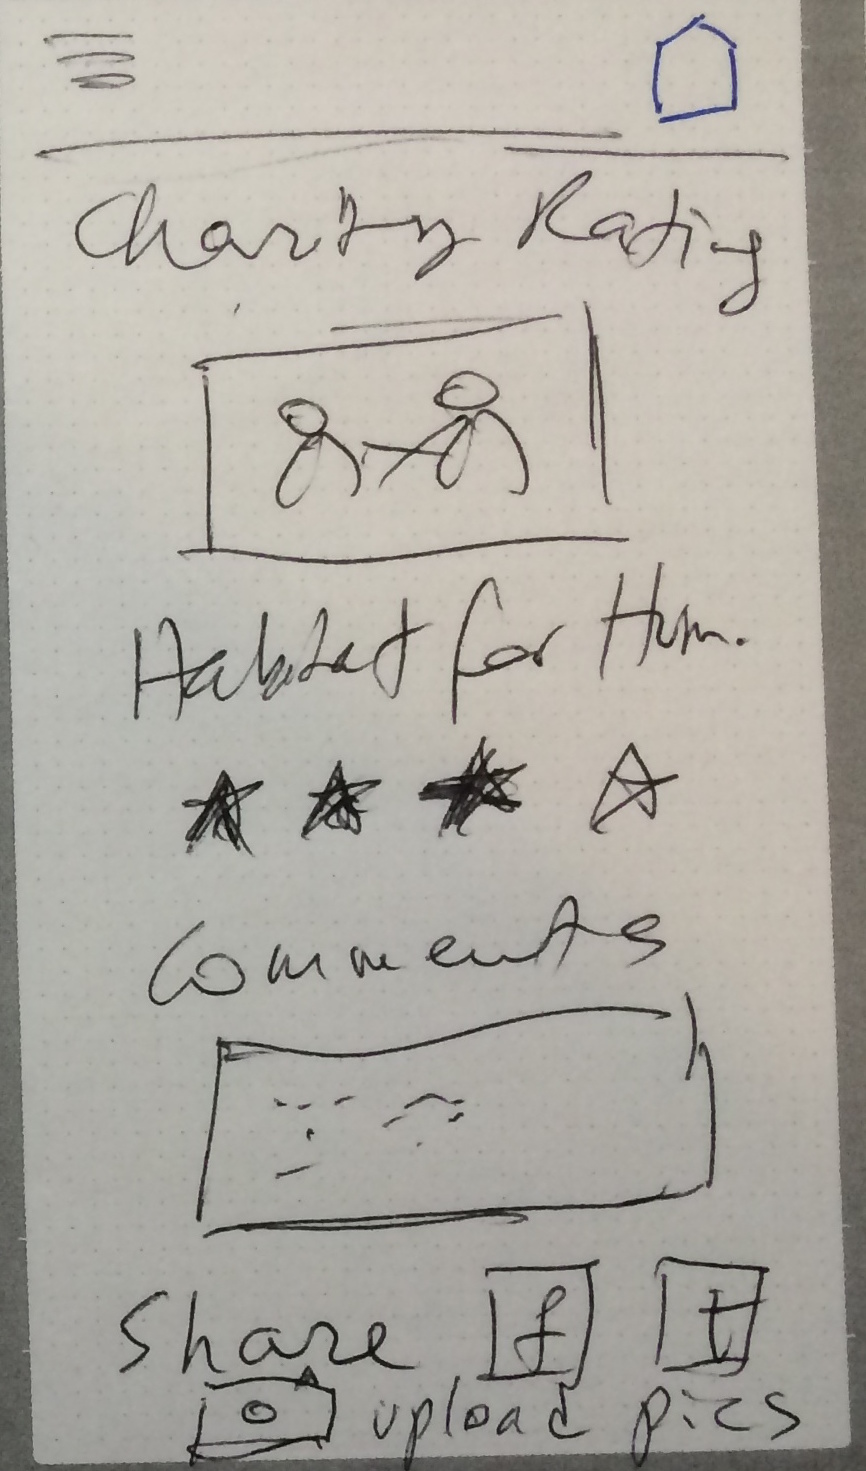 Charity Rating
Habitat for Hum.
Comments
Share f t
upload pics